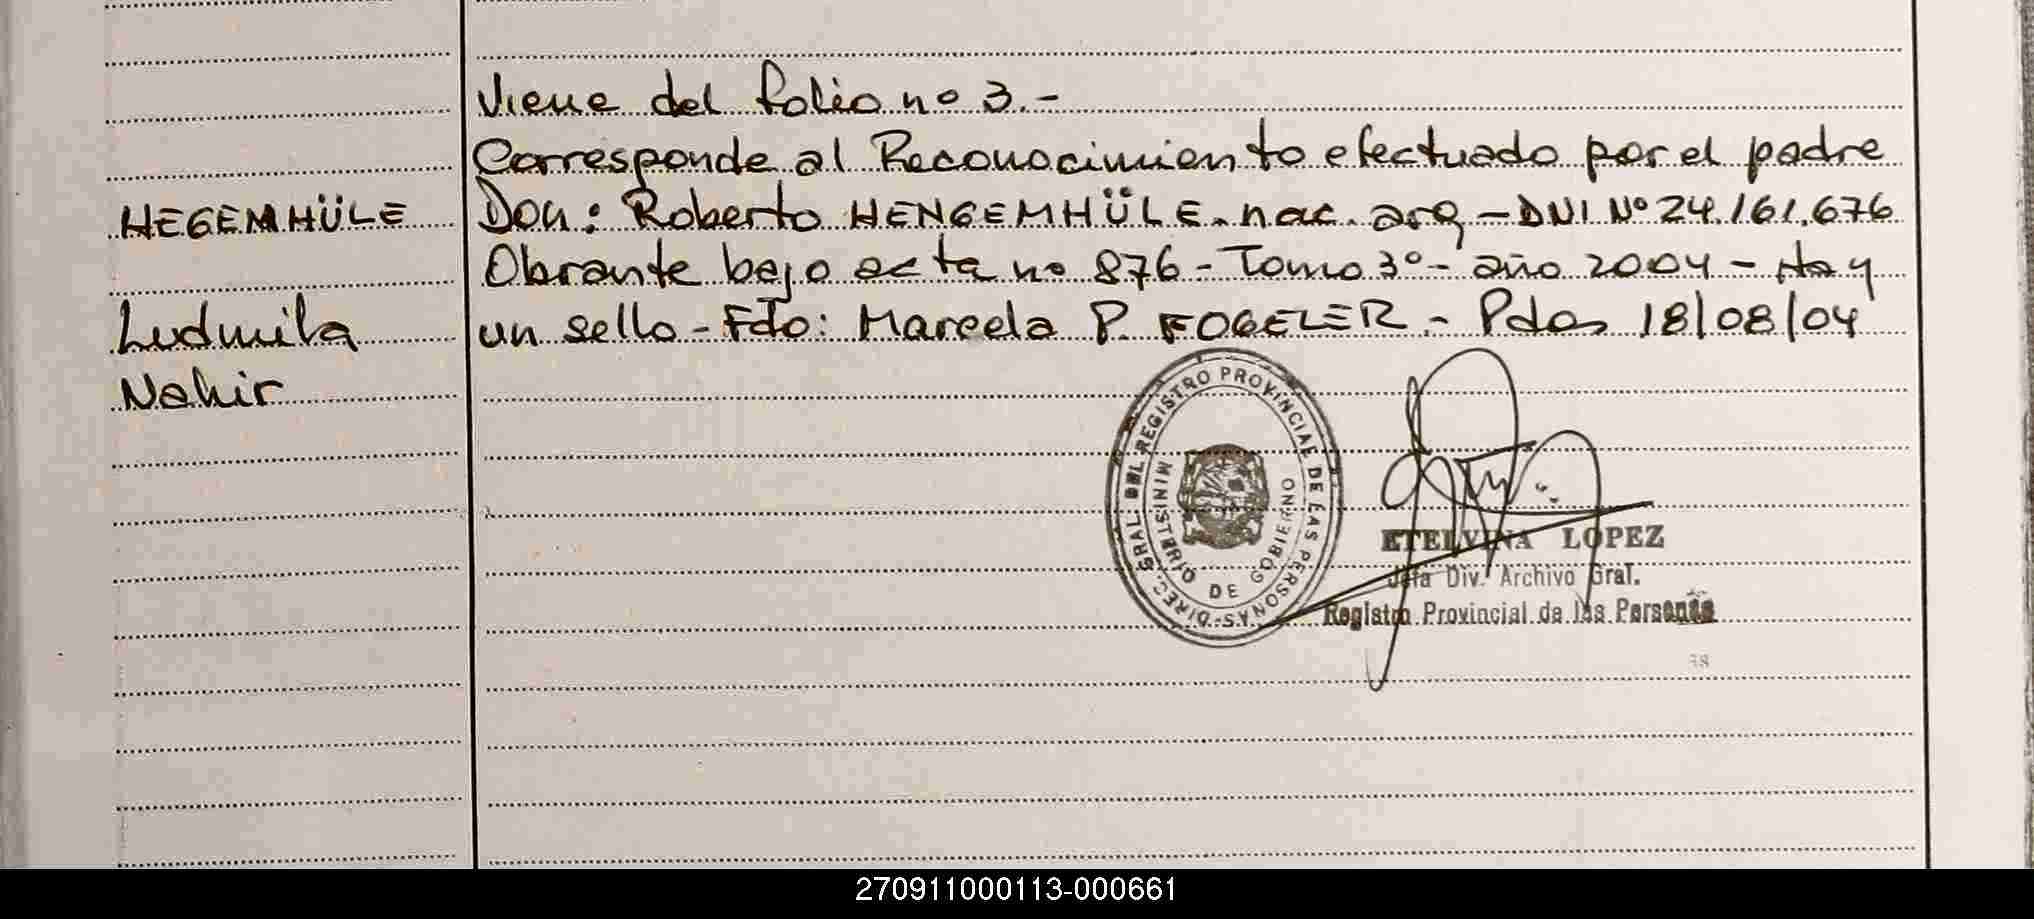 Viene del folio nº 3.-
Corresponde al Reconocimiento efectuado por el padre
HEGEMHÜLE Don: Roberto HENGEMHÜLE. nac. arg - DNI Nº 24.161.676
Obrante bajo acta nº 876 - Tomo 3º - año 2004 - Hay
Ludmila un sello - Fdo: Marcela P. FOGELER - Pdas 18/08/04
Nahir
DIREC. GRAL. DEL REGISTRO PROVINCIAL DE LAS PERSONAS
MINISTERIO DE GOBIERNO
ETELVINA LOPEZ
Jefa Div. Archivo Gral.
Registro Provincial de las Personas
270911000113-000661